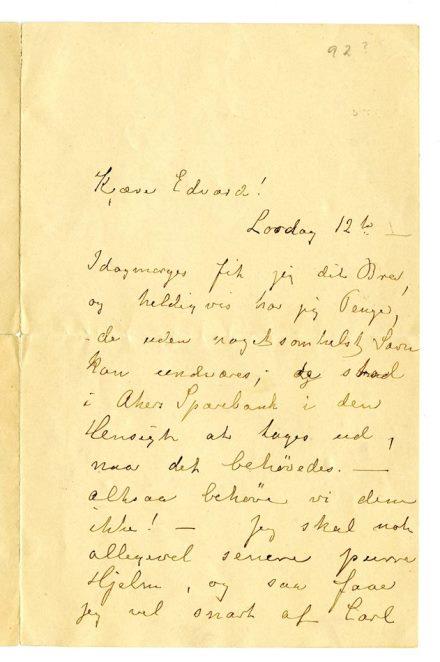 92?
Kjære Edvard!
Lørdag 12te
Idagmorges fik jeg dit Brev,
og heldigvis har jeg Penge,
de uden noget somhelst Savn
kan undværes; de stod
i Akers Sparebank i den
Hensigt at tages ud,
naar det behøvedes. —
altsaa behøve vi dem
ikke! — Jeg skal nok
allegevel senere purre
Hjelm, og saa faar
jeg vel snart af Carl